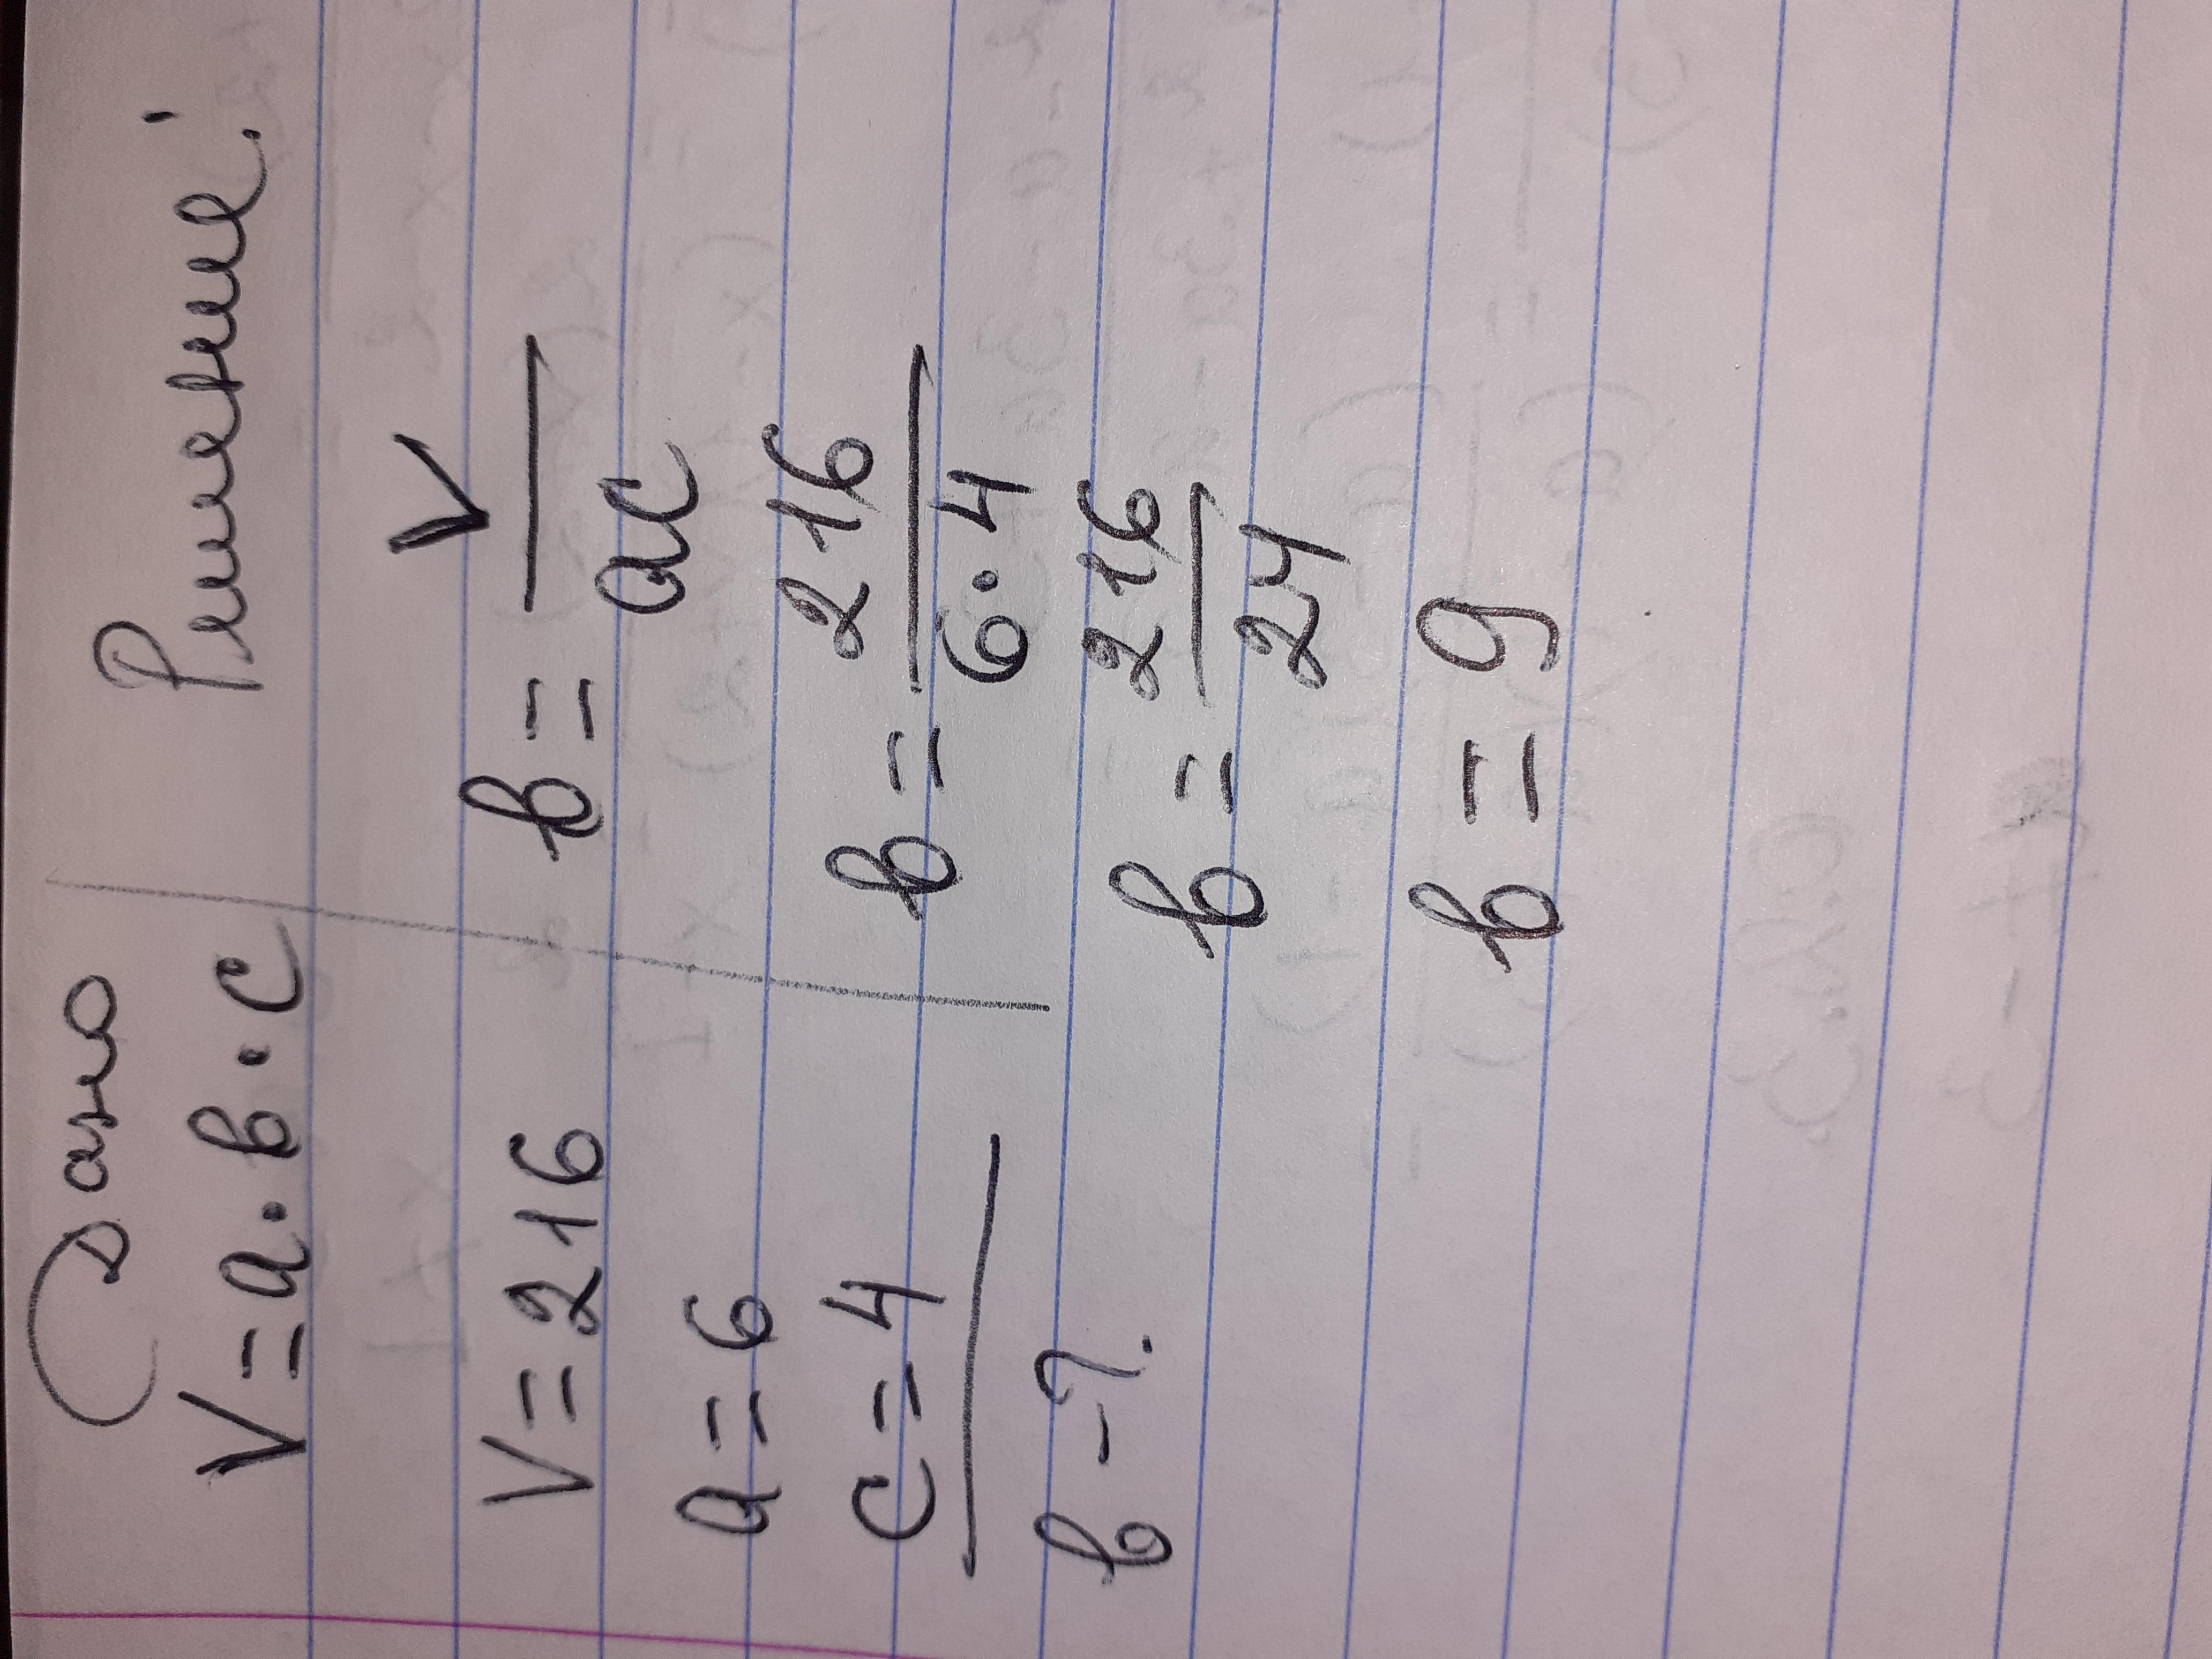 Дано
V = a · b · c
V = 216
a = 6
c = 4
b - ?
Решение:
b = V / ac
b = 216 / 6 · 4
b = 216 / 24
b = 9